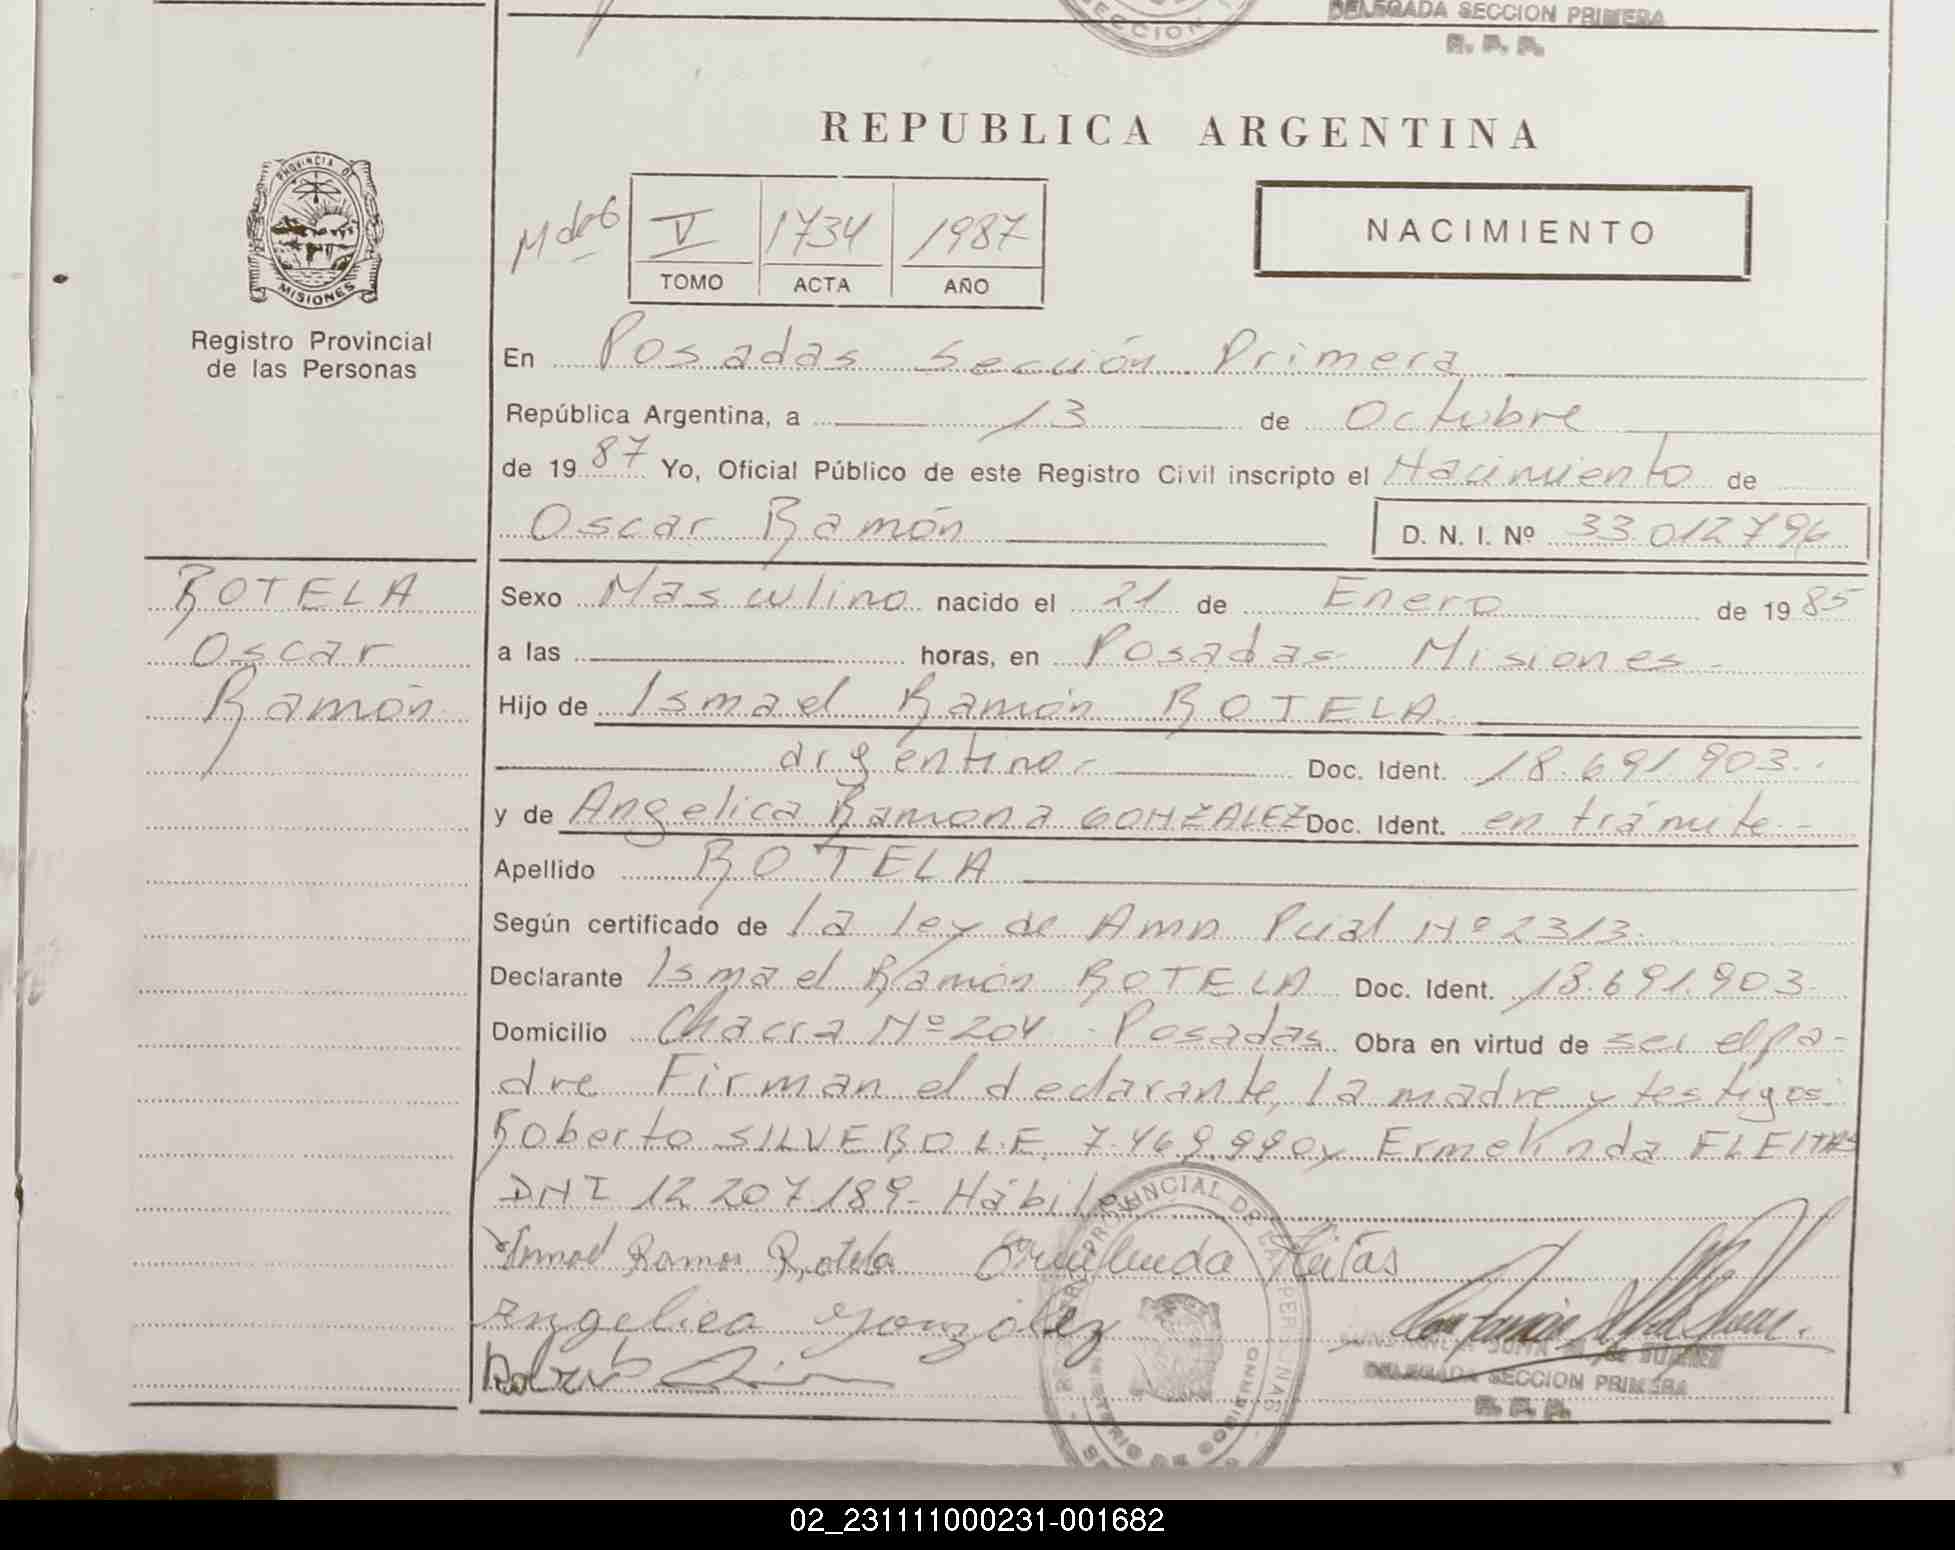 DELEGADA SECCION PRIMERA
SECCION
R. P. P.
REPUBLICA ARGENTINA
PROVINCIA DE
MISIONES
Registro Provincial
de las Personas
V 1734 1987
TOMO ACTA AÑO
NACIMIENTO
En Posadas Sección Primera
República Argentina, a 13 de Octubre
de 1987 Yo, Oficial Público de este Registro Civil inscripto el Nacimiento de
Oscar Ramón D. N. I. Nº 33.012.796
ROTELA
Oscar
Ramón
Sexo Masculino nacido el 21 de Enero de 1985
a las horas, en Posadas Misiones
Hijo de Ismael Ramón ROTELA
argentino.- Doc. Ident. 18.691.903.
y de Angelica Ramona GONZALEZ Doc. Ident. en trámite.-
Apellido ROTELA
Según certificado de la ley de Amn Pcial Nº 2313.
Declarante Ismael Ramón ROTELA Doc. Ident. 18.691.903.
Domicilio Chacra Nº 204 - Posadas. Obra en virtud de ser el pa-
dre Firman el declarante, la madre y testigos:
Roberto SILVERO L.E. 7.469.990 y Ermelinda FLEITAS
DNI 12.207.189- Hábiles
Ismael Ramon Rotela Ermelinda Fleitas
Angelica Gonzalez
DELEGADA SECCION PRIMERA
R. P. P.
02_231111000231-001682